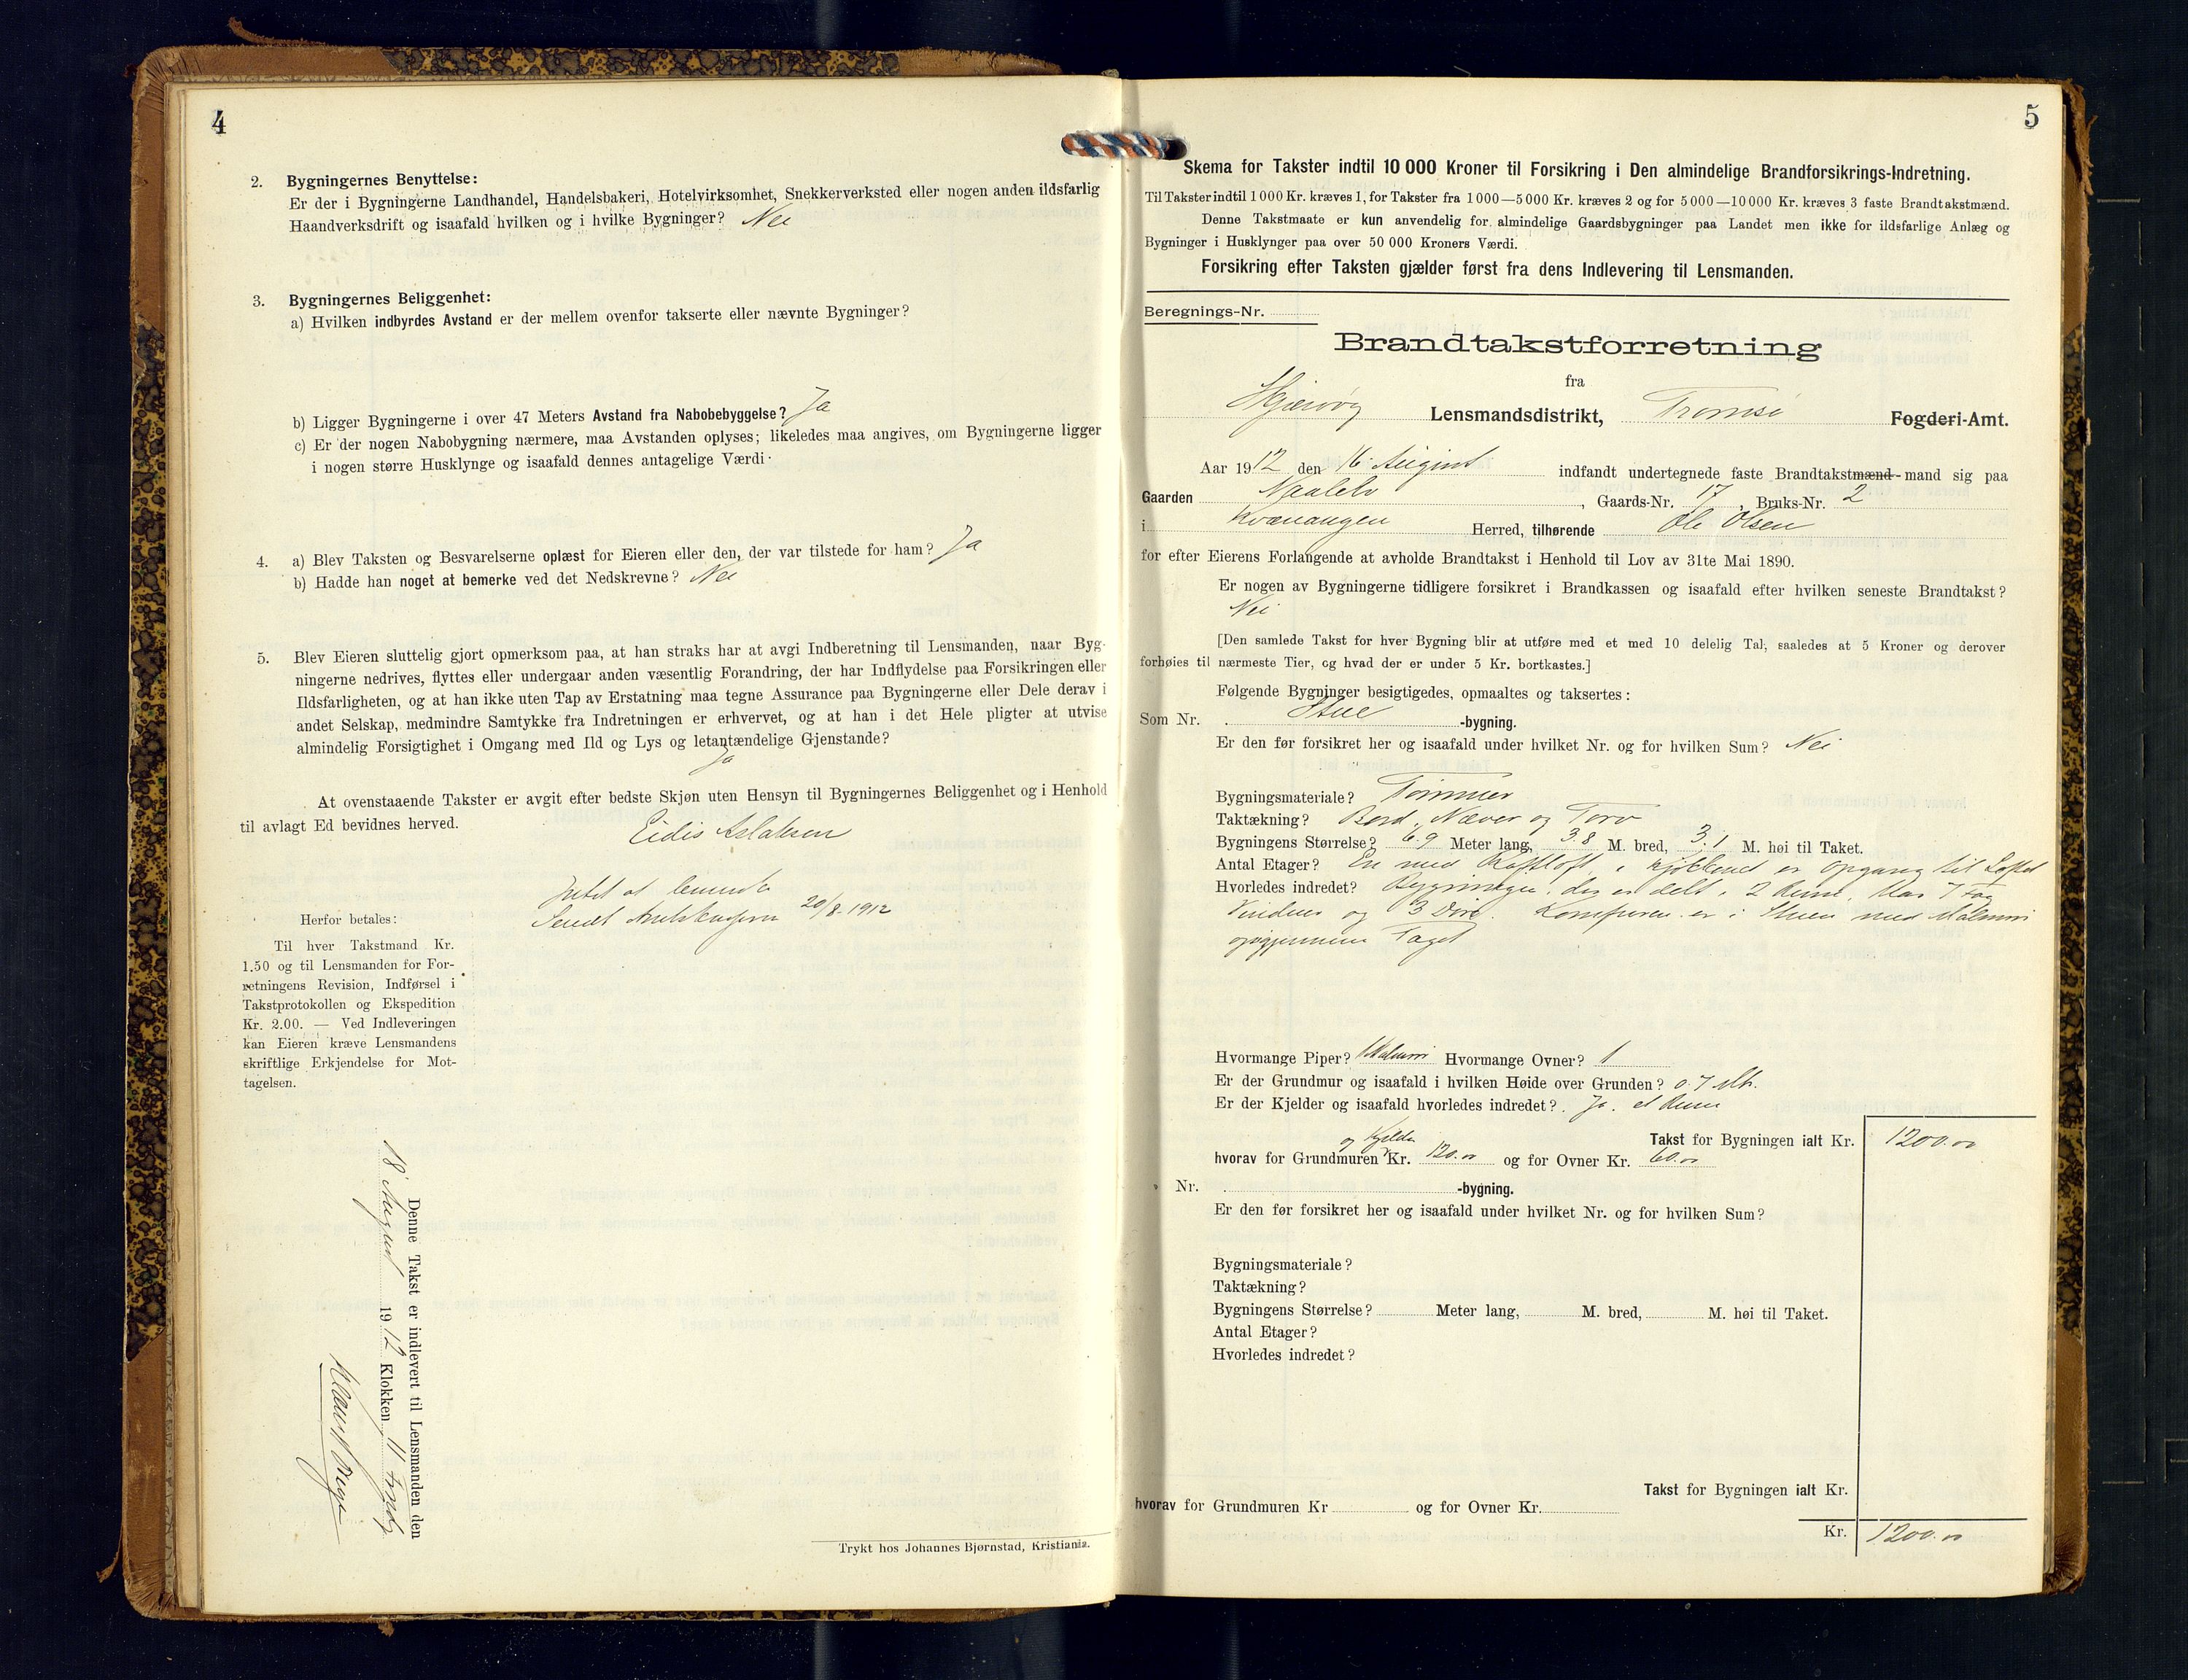 4
2. Bygningernes Benyttelse:
Er der i Bygningerne Landhandel, Handelsbakeri, Hotelvirksomhet, Snekkerverksted eller nogen anden ildsfarlig
Haandverksdrift og isaafald hvilken og i hvilke Bygninger? Nei
3. Bygningernes Beliggenhet:
a) Hvilken indbyrdes Avstand er der mellem ovenfor takserte eller nævnte Bygninger?
b) Ligger Bygningerne i over 47 Meters Avstand fra Nabobebyggelse? Ja
c) Er der nogen Nabobygning nærmere, maa Avstanden oplyses; likeledes maa angives, om Bygningerne ligger
i nogen større Husklynge og isaafald dennes antagelige Værdi.
4. a) Blev Taksten og Besvarelserne oplæst for Eieren eller den, der var tilstede for ham? Ja
b) Hadde han noget at bemerke ved det Nedskrevne? Nei
5. Blev Eieren sluttelig gjort opmerksom paa, at han straks har at avgi Indberetning til Lensmanden, naar Byg-
ningerne nedrives, flyttes eller undergaar anden væsentlig Forandring, der har Indflydelse paa Forsikringen eller
Ildsfarligheten, og at han ikke uten Tap av Erstatning maa tegne Assurance paa Bygningerne eller Dele derav i
andet Selskap, medmindre Samtykke fra Indretningen er erhvervet, og at han i det Hele pligter at utvise
almindelig Forsigtighet i Omgang med Ild og Lys og letantændelige Gjenstande?
Ja
At ovenstaaende Takster er avgit efter bedste Skjøn uten Hensyn til Bygningernes Beliggenhet og i Henhold
til avlagt Ed bevidnes herved.
Eidis Aslaksen
Intet at bemerke
20/8. 1912
Herfor betales:
Til hver Takstmand Kr.
1.50 og til Lensmanden for For-
retningens Revision, Indførsel i
Takstprotokollen og Ekspedition
Kr. 2.00. — Ved Indleveringen
kan Eieren kræve Lensmandens
skriftlige Erkjendelse for Mot-
tagelsen.
Denne Takst er indlevert til Lensmanden den
18 August 1912 Klokken 11
Trykt hos Johannes Bjørnstad, Kristiania.
5
Skema for Takster indtil 10 000 Kroner til Forsikring i Den almindelige Brandforsikrings-Indretning.
Til Takster indtil 1 000 Kr. kræves 1, for Takster fra 1 000—5 000 Kr. kræves 2 og for 5 000—10 000 Kr. kræves 3 faste Brandtakstmænd.
Denne Takstmaate er kun anvendelig for almindelige Gaardsbygninger paa Landet men ikke for ildsfarlige Anlæg og
Bygninger i Husklynger paa over 50 000 Kroners Værdi.
Forsikring efter Taksten gjælder først fra dens Indlevering til Lensmanden.
Beregnings-Nr.
Brandtakstforretning
fra
Skjærvøy Lensmandsdistrikt, Tromsø Fogderi-Amt.
Aar 1912 den 16 August indfandt undertegnede faste Brandtakstmænd-mand sig paa
Gaarden Gaards-Nr. 17, Bruks-Nr. 2
i Kvænangen Herred, tilhørende Ole Olsen
for efter Eierens Forlangende at avholde Brandtakst i Henhold til Lov av 31te Mai 1890.
Er nogen av Bygningerne tidligere forsikret i Brandkassen og isaafald efter hvilken seneste Brandtakst?
Nei
[Den samlede Takst for hver Bygning blir at utføre med et med 10 delelig Tal, saaledes at 5 Kroner og derover
forhøies til nærmeste Tier, og hvad der er under 5 Kr. bortkastes.]
Følgende Bygninger besigtigedes, opmaaltes og taksertes:
Som Nr. Stue -bygning.
Er den før forsikret her og isaafald under hvilket Nr. og for hvilken Sum? Nei
Bygningsmateriale? Tømmer
Taktækning? Bord, Næver og Torv
Bygningens Størrelse? 6.9 Meter lang, 3.8 M. bred, 3.1 M. høi til Taket.
Antal Etager? En med Røstloft, i kjøkkenet er Opgang til Loftet
Hvorledes indret? Bygningen er delt i 2 Rum. Har 7 Fag
Vinduer og 3 Døre. Komfuren er i Stuen med Malmrør
opigjennem Taget
Hvormange Piper? 1 Malmrør Hvormange Ovner? 1
Er der Grundmur og isaafald i hvilken Høide over Grunden? 0.7 Mtr.
Er der Kjelder og isaafald hvorledes indredet? Ja. et Rum
Takst for Bygningen ialt Kr. 1200.00
og Kjelder
hvorav for Grundmuren Kr. 120.00 og for Ovner Kr. 60.00
Nr. -bygning.
Er den før forsikret her og isaafald under hvilket Nr. og for hvilken Sum?
Bygningsmateriale?
Taktækning?
Bygningens Størrelse? Meter lang, M. bred, M. høi til Taket.
Antal Etager?
Hvorledes indredet?
Takst for Bygningen ialt Kr.
hvorav for Grundmuren Kr og for Ovner Kr.
Kr. 1200.00